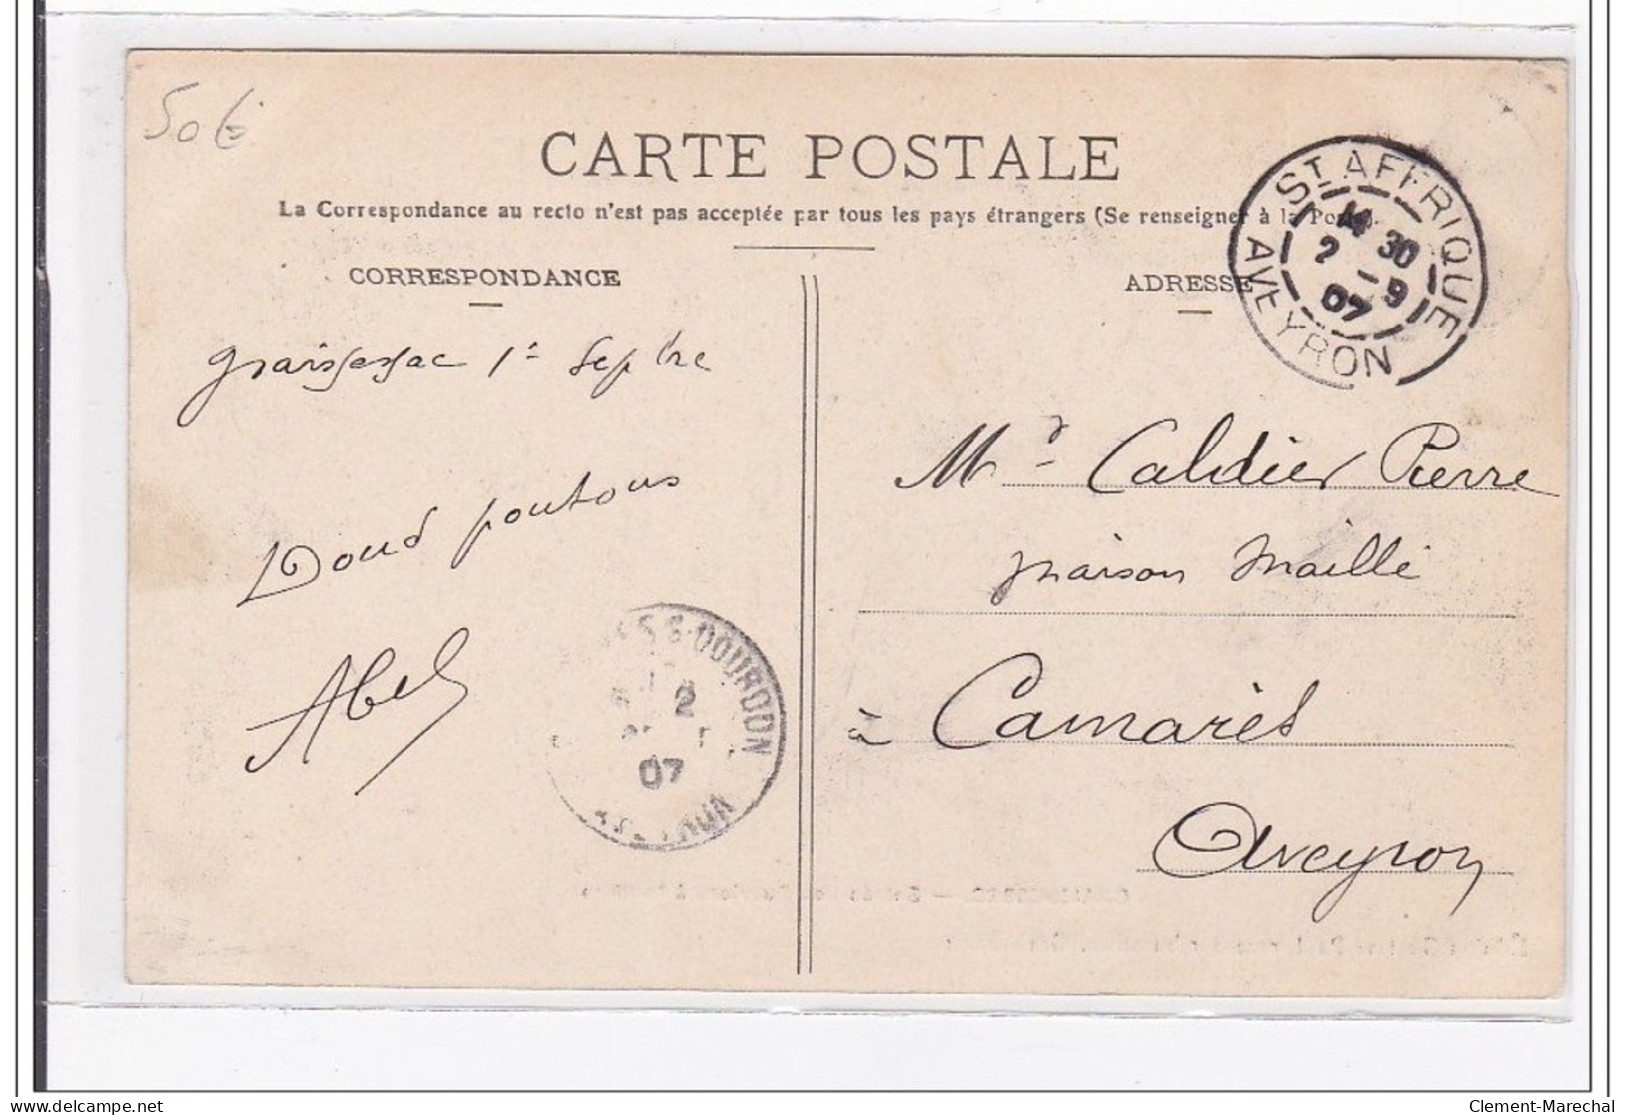 50€
CARTE POSTALE
La Correspondance au recto n'est pas acceptée par tous les pays étrangers (Se renseigner à la Poste).
CORRESPONDANCE
ADRESSE
ST AFFRIQUE
14 30
2 - 9
07
AVEYRON
graissessac 1er Sepbre
Doud poutous
Abel
2
07
Mr Caldier Pierre
maison Maillé
à Camarès
Aveyron
Clement-Marechal